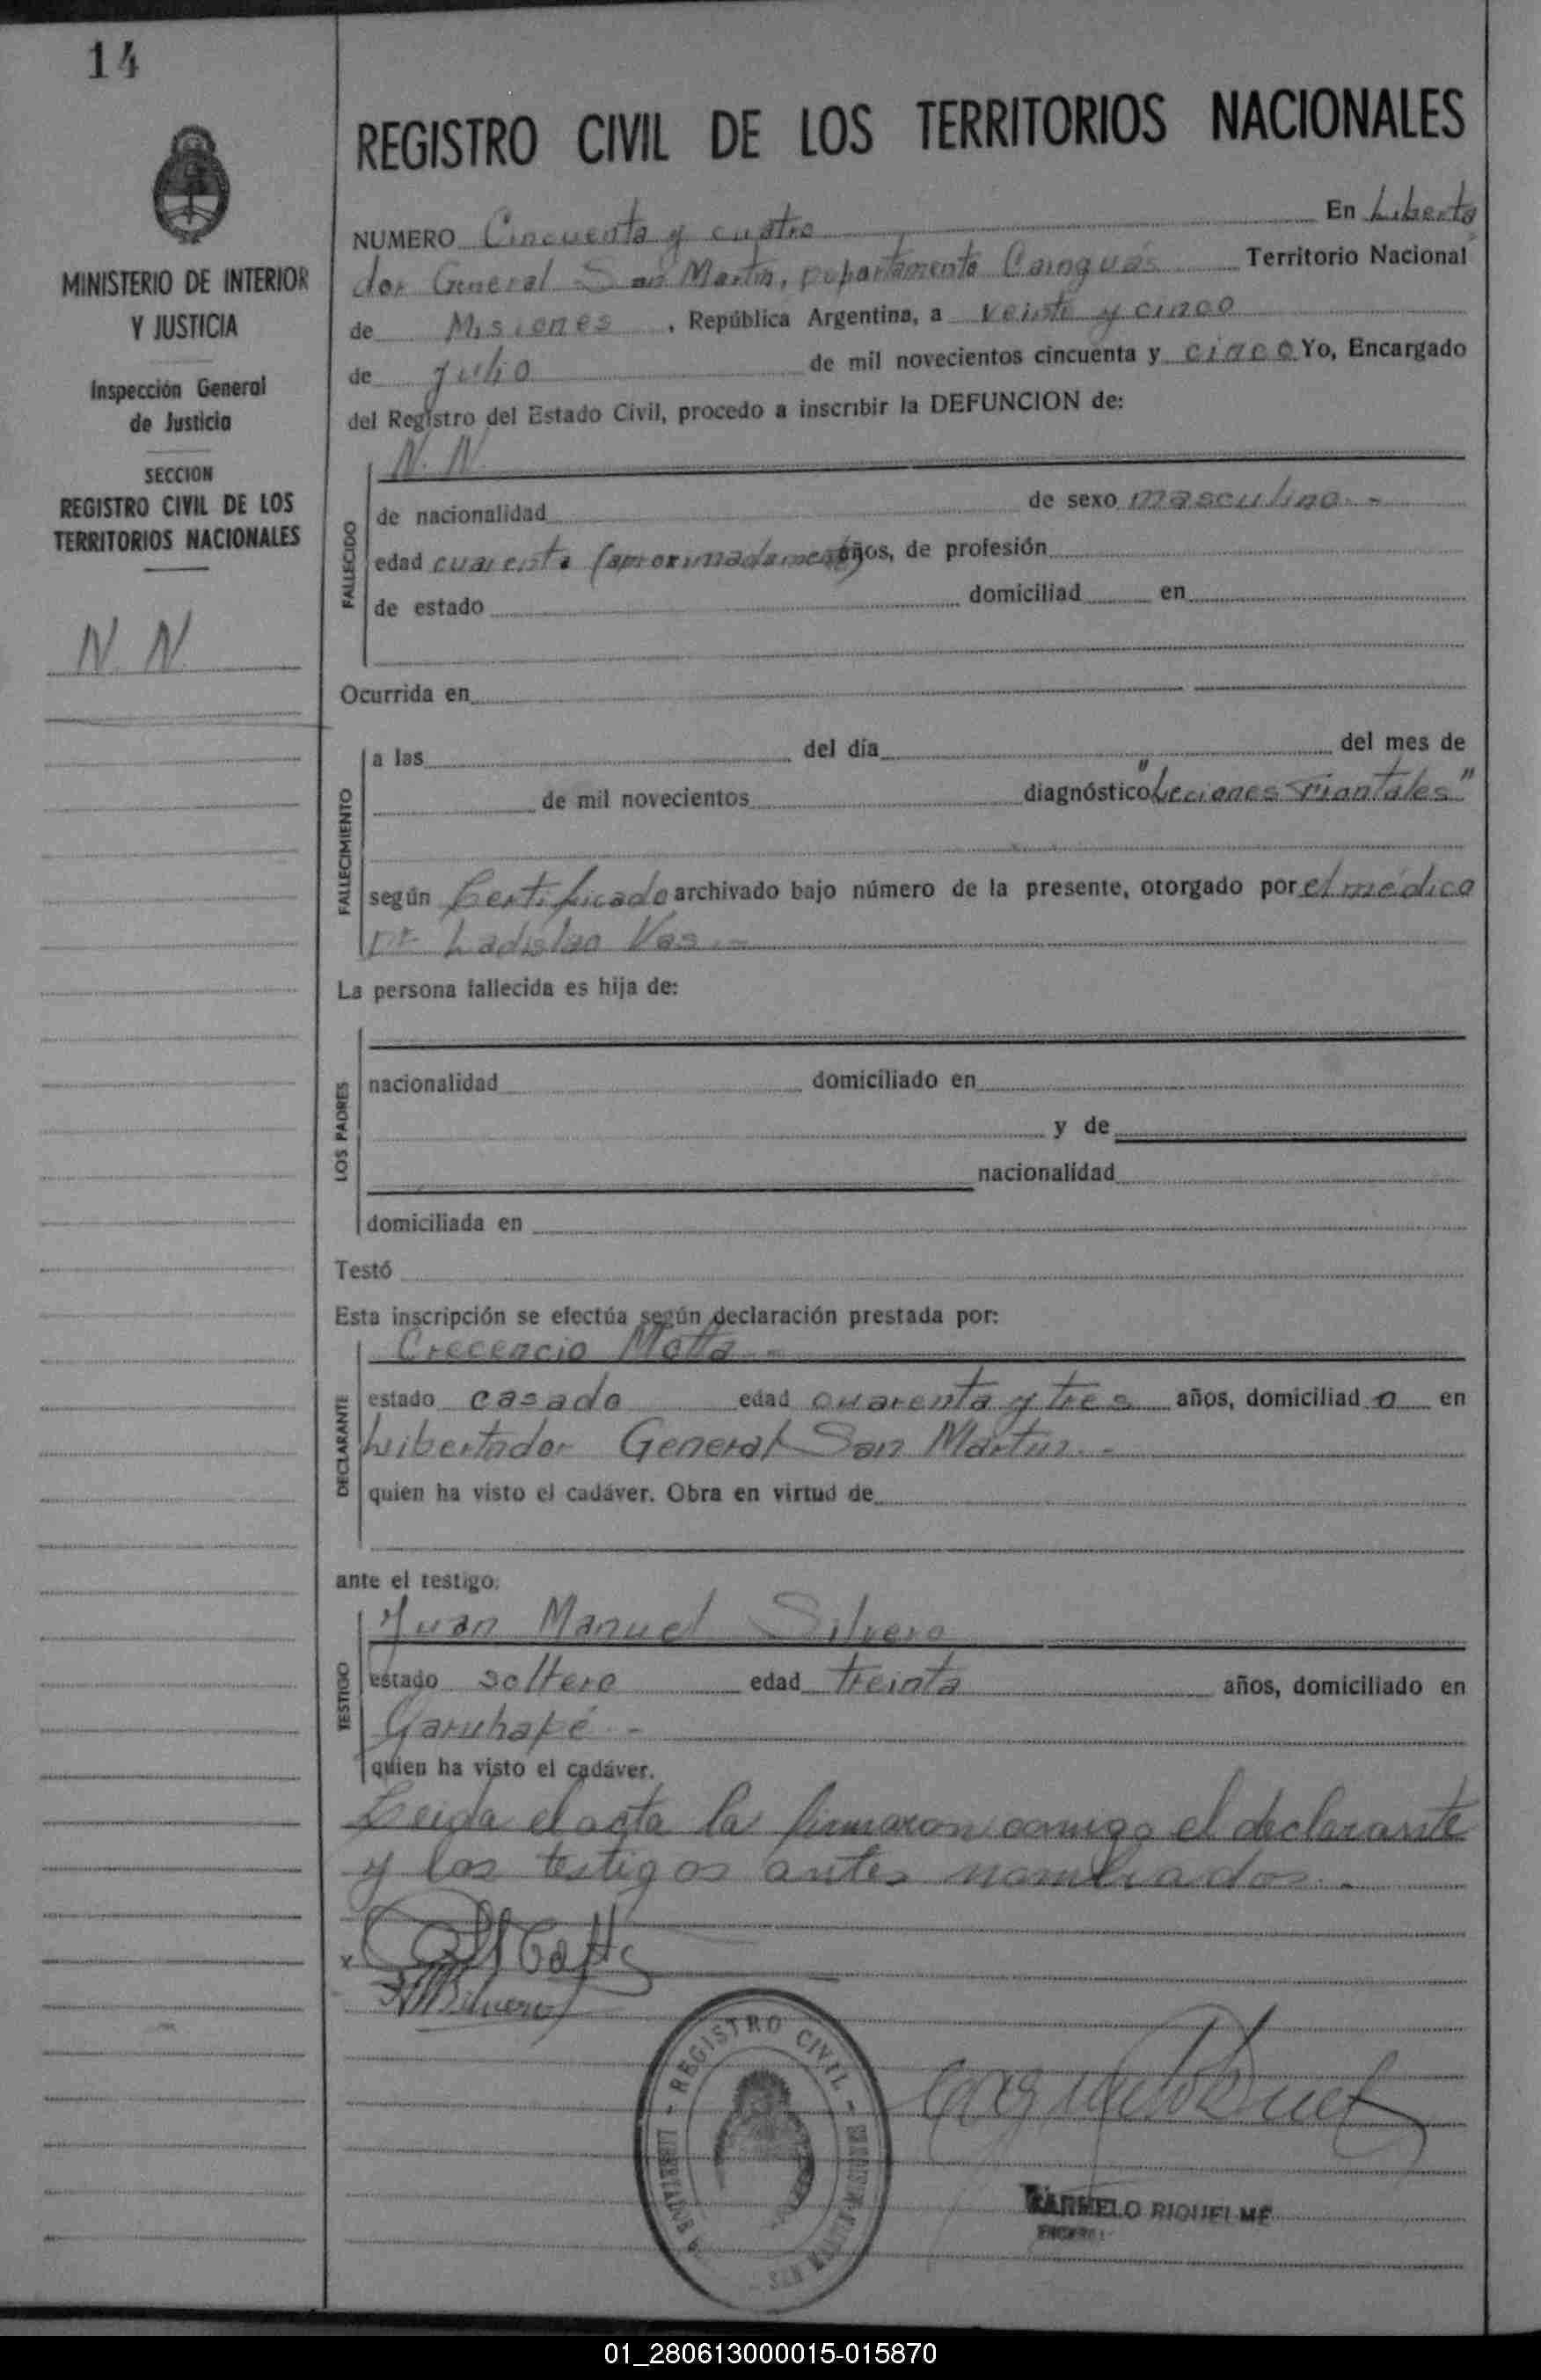 14
REGISTRO CIVIL DE LOS TERRITORIOS NACIONALES
MINISTERIO DE INTERIOR
Y JUSTICIA
Inspección General
de Justicia
SECCION
REGISTRO CIVIL DE LOS
TERRITORIOS NACIONALES
N. N.
NUMERO Cincuenta y cuatro En Liberta
dor General San Martín, Departamento Cainguás Territorio Nacional
de Misiones, República Argentina, a veinte y cinco
de julio de mil novecientos cincuenta y cinco Yo, Encargado
del Registro del Estado Civil, procedo a inscribir la DEFUNCION de:
N. N.
FALLECIDO
de nacionalidad de sexo masculino. -
edad cuarenta (aproximadamente) años, de profesión
de estado domiciliad en
Ocurrida en
FALLECIMIENTO
a las del día del mes de
de mil novecientos diagnóstico "Lecciones
según Certificado archivado bajo número de la presente, otorgado por el médico
Dr Ladislao Vas. -
La persona fallecida es hija de:
LOS PADRES
nacionalidad domiciliado en
y de
nacionalidad
domiciliada en
Testó
Esta inscripción se efectúa según declaración prestada por:
Crecencio Motta -
DECLARANTE
estado casado edad cuarenta y tres años, domiciliad o en
Libertador General San Martín. -
quien ha visto el cadáver. Obra en virtud de
ante el testigo:
Juan Manuel Silvero
TESTIGO
estado soltero edad treinta años, domiciliado en
Garuhapé -
quien ha visto el cadáver.
Leida el acta la firmaron conmigo el declarante
y los testigos antes nombrados. -
REGISTRO CIVIL
CARMELO RIQUELME
01_280613000015-015870